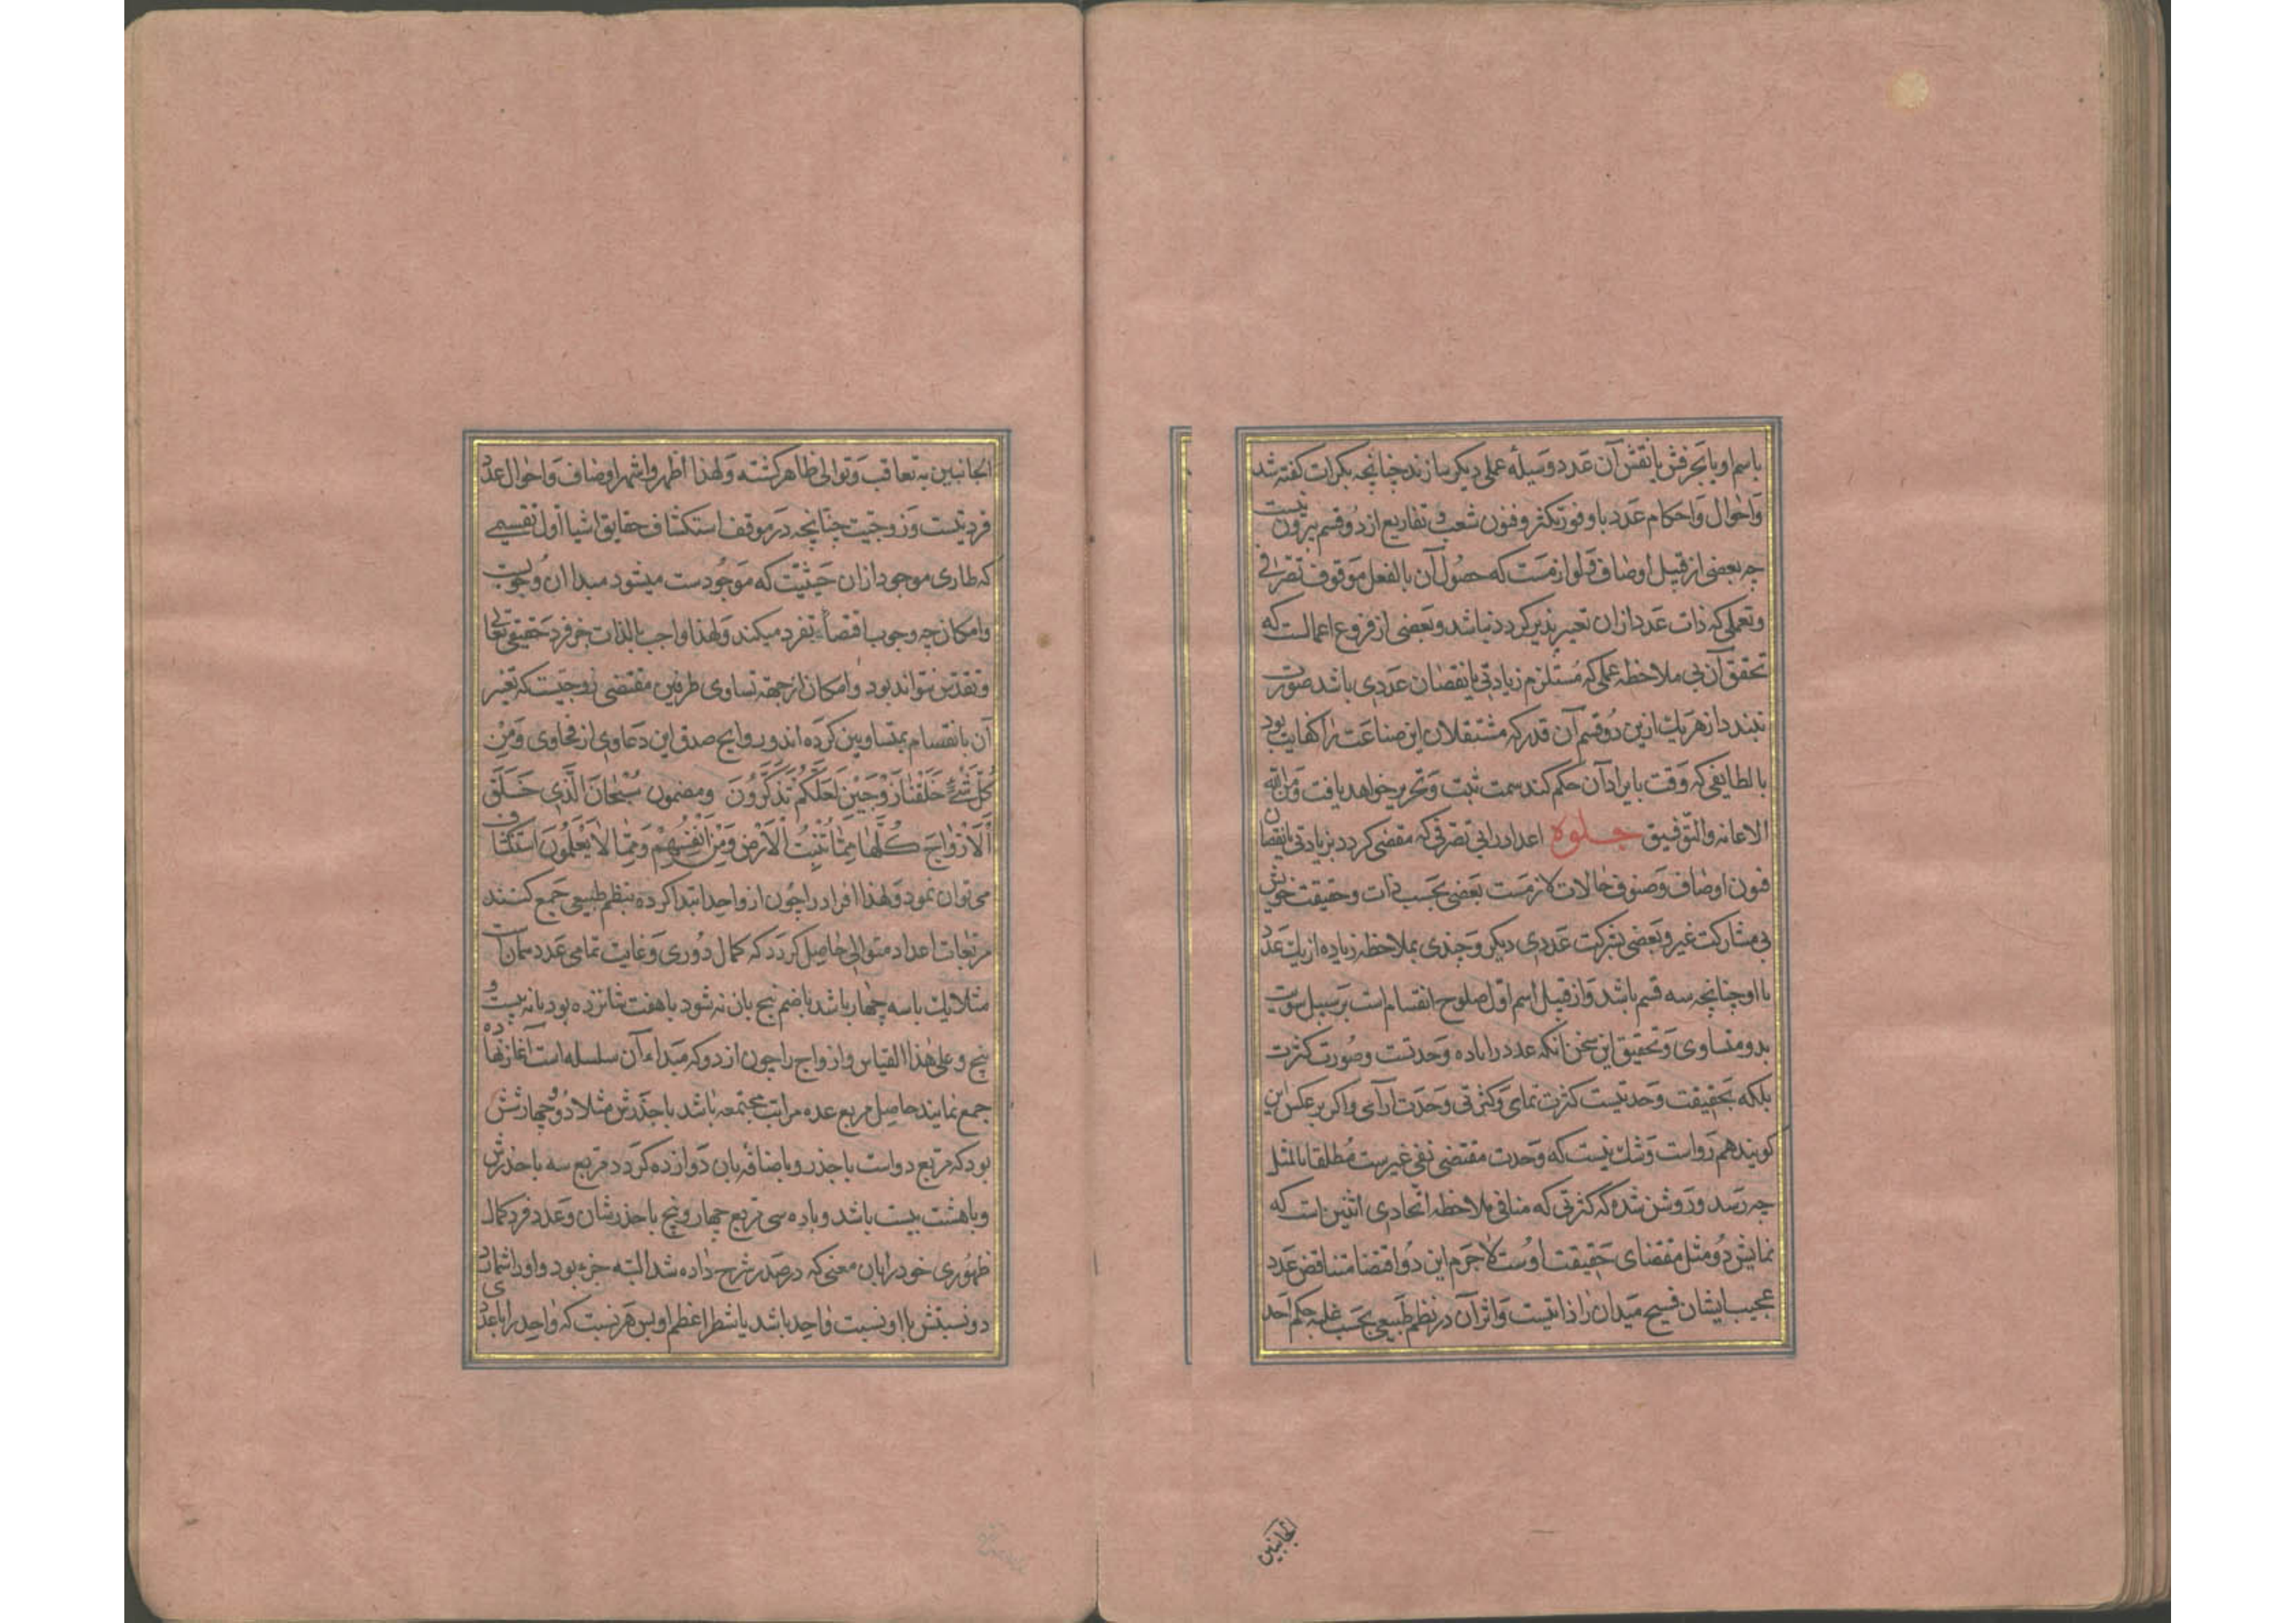 باسم او یا بجزفش یا نقش آن عدد وسیلهٔ عملی دیکر سازند چنانچه بکرات کفته شد
واحوال واحکام عدد با وفور تکثر وفنون شعب و تفاریع از دو قسم بیرون نیست
چه بعضی از قبیل اوصاف ولوازمست که حصول آن بالفعل موقوف تصرفی
وتعملی که ذات عدد ازان تغیر پذیر کردد نباشد وبعضی از فروع اعمالست که
تحقق آن بی ملاحظه عملی که مستلزم زیادتی یا نقصان عددی باشد صورت
نبندد از هریك ازین دو قسم آن قدر که مشتغلان این صناعت را کفایت بود
با لطایفی که وقت بایراد آن حکم کند سمت ثبت وتحریر خواهد یافت ومن الله
الاعانه والتوفیق جلوه اعداد رابی تصرفی که مقضی کردد بزیادتی یا نقصان
فنون اوصاف وصنوف حالات لازمست بعضی بحسب ذات وحقیقت خویش
بی مشارکت غیر وبعضی بشرکت عددی دیکر وچندی بملاحظه زیاده از یك عدد
با او چنانچه سه قسم باشد واز قبیل اسم اول صلوح انقسام است بر سبیل سویت
بدو متساوی وتحقیق این سخن انکه عدد را باده وحدتست وصورت کثرت
بلکه بحقیقت وحدتیست کثرت نمای وکثرتی وحدت آرای واکر بر عکس این
کویند هم رواست وشك نیست که وحدت مقتضی نفی غیرست مطلقا بالمثل
چه رسد وروشن شده که کثرتی که منافی ملاحظه اتحادی اثنین است که
نمایش دو مثل مقتضای حقیقت اوست لاجرم این دو اقتضا متناقض عدد
عجیب ایشان فسیح میدان را ذاتیست واثر آن در نظم طبیعی بحسب غلبه حکم احد
الجانبین
الجانبین به تعاقب وتوالی ظاهر کشته ولهذا اظهر واشهر اوصاف واحوال عدد
فردیتست وزوجیت چنانچه در موقف استکشاف حقایق اشیا اول تقسیمی
که طاری موجود ازان حیثیت که موجودست میشود مبدا ان وجوبست
وامکان چه وجوب اقتضاء تفرد میکند ولهذا واجب بالذات جز فرد حقیقی تعالی
وتقدس نتواند بود وامکان از جهة تساوی طرفین مقتضی زوجیتست که تغیر
آن بانقسام بمتساویین کرده اند وروایح صدق این دعاوی از فحاوی ومن
کل شیء خلقنا زوجین لعلکم تذکرون ومضمون سبحان الذی خلق
الازواج کلها مما تنبت الارض ومن انفسهم ومما لا یعلمون استکشاف
می توان نمود ولهذا افراد را چون از واحد ابتدا کرده بنظم طبیعی جمع کنند
مربعات اعداد متوالی حاصل کردد که کمال دوری وغایت تمامی عدد سمات است
مثلا یك باسه چهار باشد با ضم پنج بان نه شود با هفت شانزده بود با نه بیست و
پنج وعلی هذا القیاس وازواج را چون از دو که مبداء آن سلسله است آغاز نهاده
جمع نمایند حاصل مربع عده مراتب مجتمعه باشد با جذرش مثلا دو وچهار شش
بود که مربع دو است با جذر وبا ضافه بان دوازده کردد مربع سه با جذرش
وبا هشت بیست باشد وباده سی مربع چهار وپنج با جذرشان وعدد فرد کمال
ظهوری خود را بان معنی که در صدر شرح داده شد البته جزء بود واورا شمارد
دو نسبتش با او نسبت واحد باشد یا شطر اعظم او پس هر نسبت که واحد را با عددی